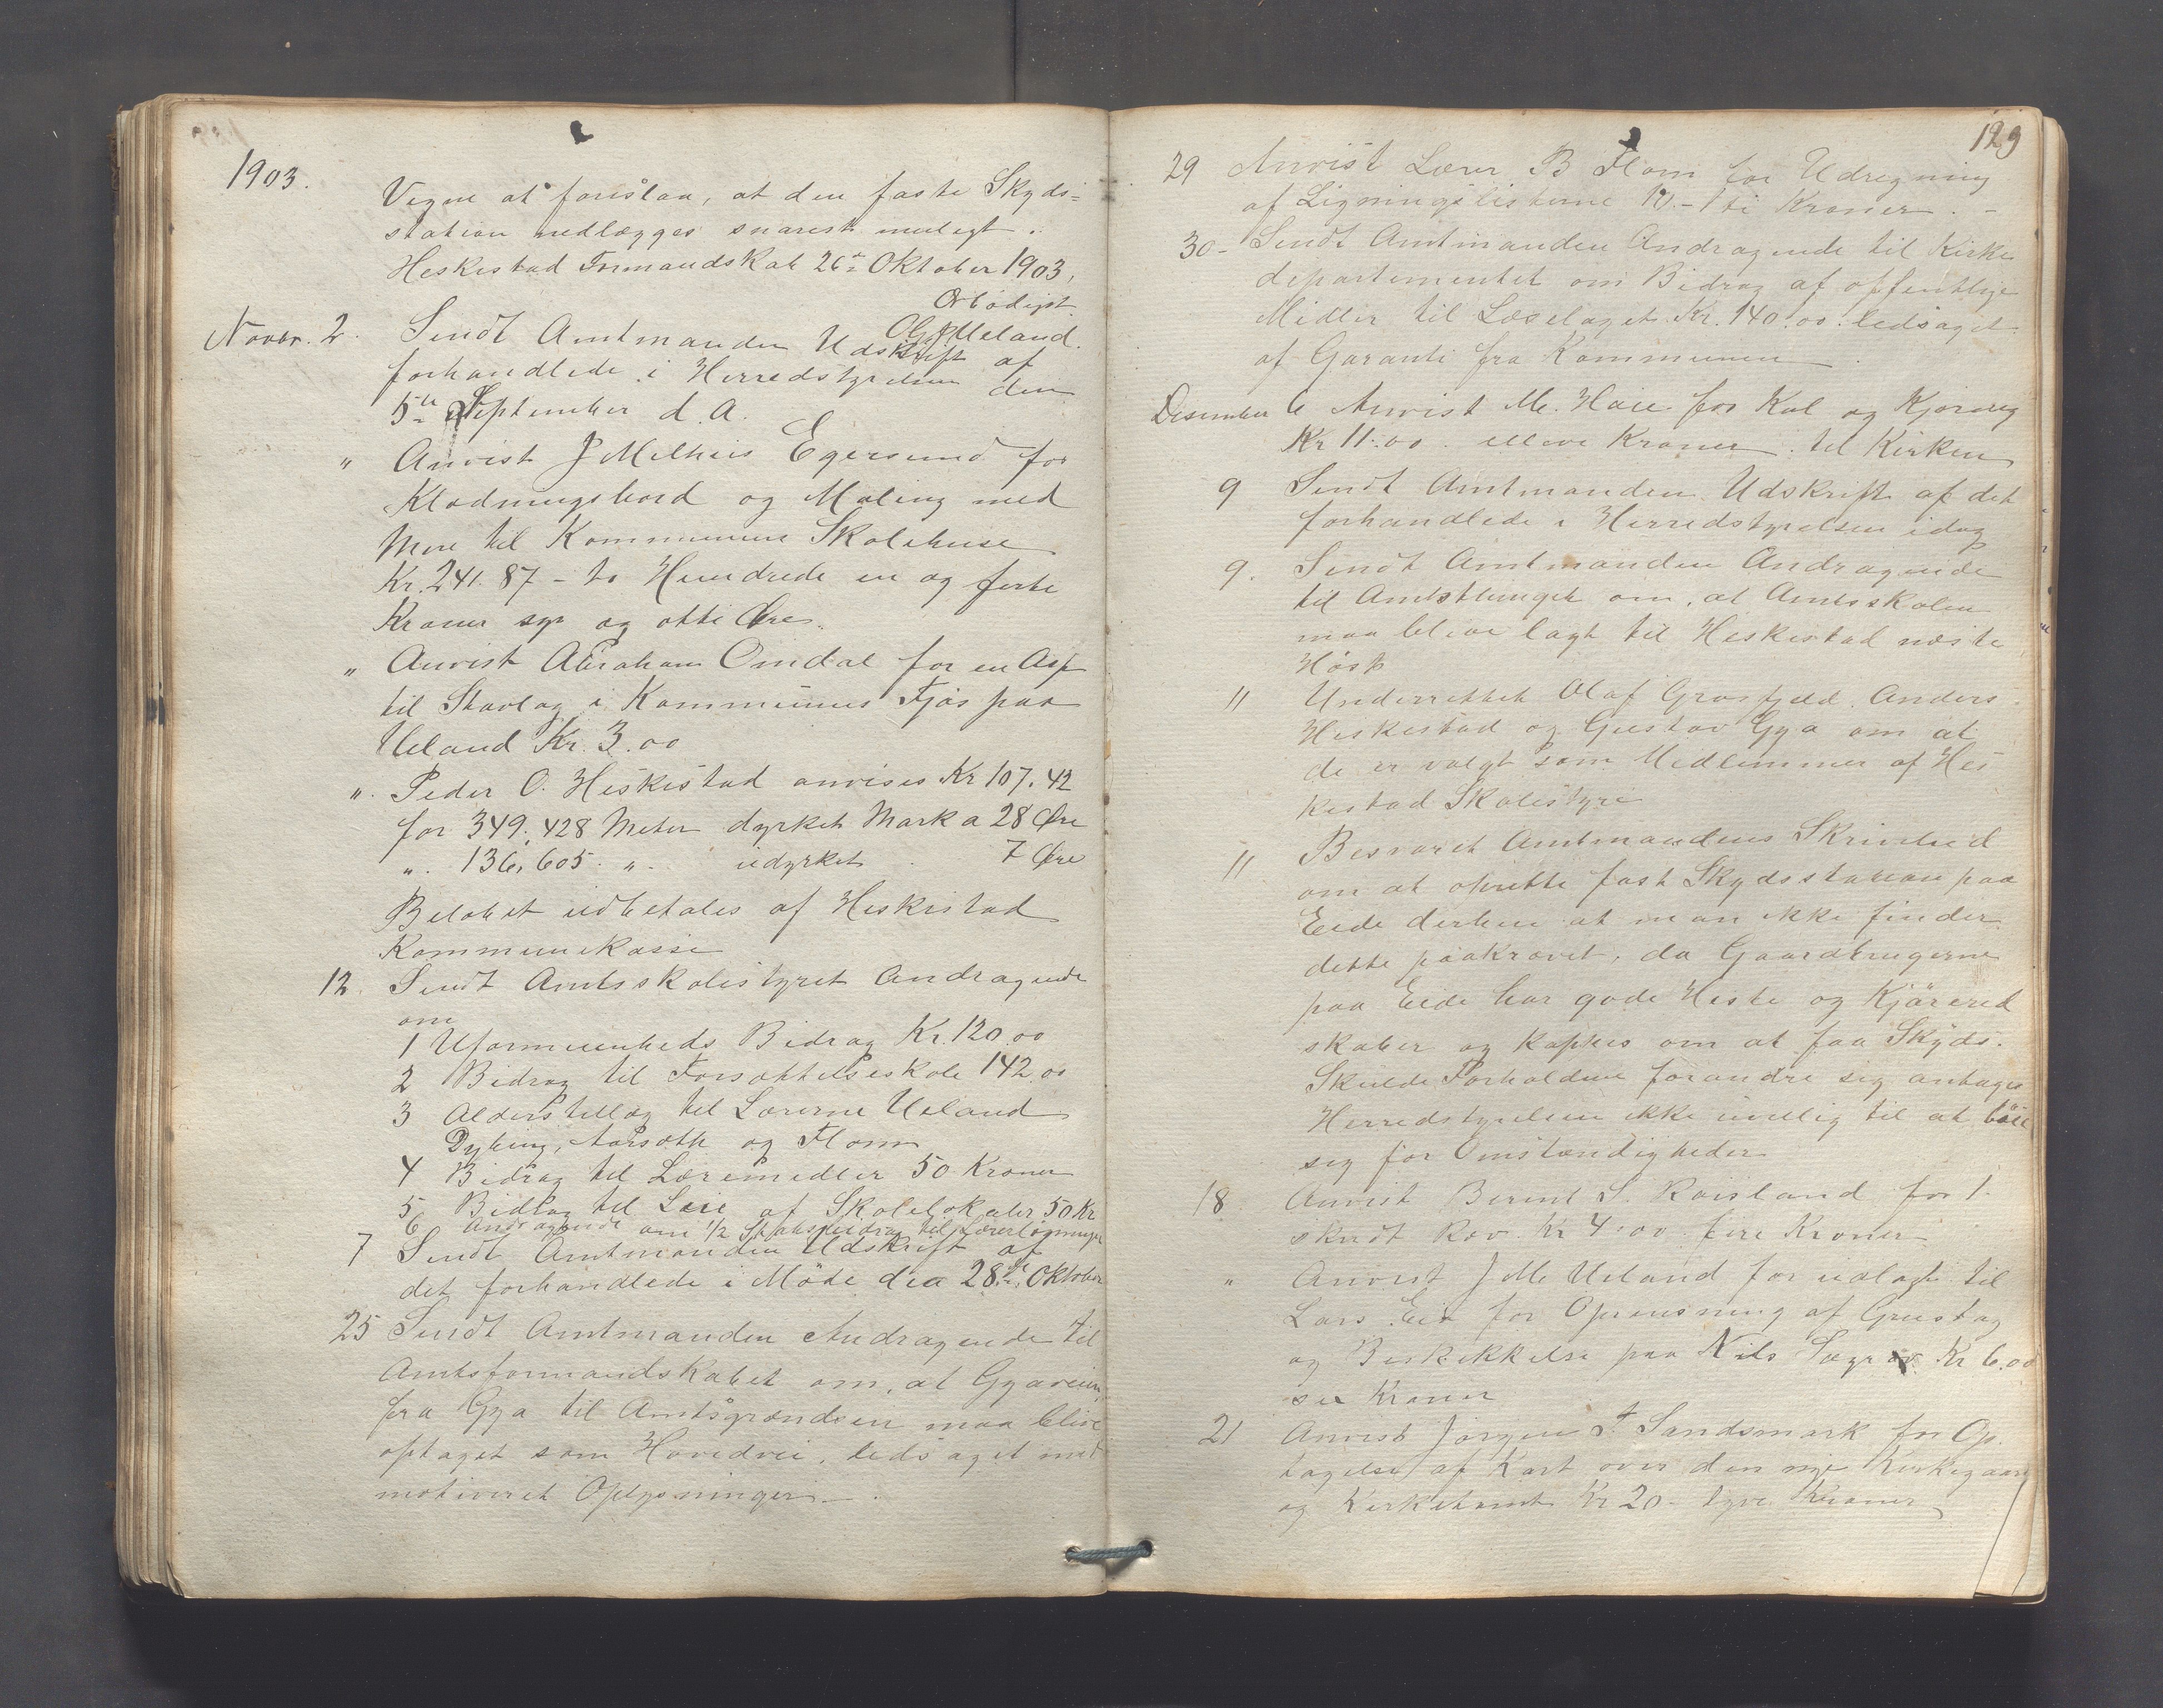 1903.
Vegne at foreslaa, at den faste Skyds=
station nedlægges snarest muligt.
Heskestad Formandskab 26de Oktober 1903,
Ærbødigst
Novbr. 2. Sendt Amtmanden Udskrift af
forhandlede i Herredstyrelsen den
5te September d.A.
" Anvist J Melhus Egersund for
Klædningsbord og Maling med
mere til Kommunens Skolehuse
Kr. 241.87 - to Hundrede en og førte
Kroner syv og otti Øre.
" Anvist Abraham Omdal for en Asp
til Stavlag i Kommunens Fjøs paa
Ueland Kr. 3.00
" Peder O. Heskestad anvises Kr 107.42
for 349,428 Meter dyrket Mark a 28 Øre
" 136,605 " udyrket 7 Øre
Beløbet udbetales af Heskestad
Kommunekasse
12. Sendt Amtsskolestyret Andragende
om
1 Uformuenheds Bidrag Kr. 120.00
2 Bidrag til Forsættelseskole 142.00
3 Alderstillæg til Lærerne Ueland
Dybing, Aarsæth og Flom
4 Bidrag til Læremedler 50 Kroner
5 Bidrag til Leie af Skolelokaler 50 Kr
6 Andragende om 1/2 Statsbidrag til Lærerlønninger
7 Sendt Amtmanden Udskrift af
det forhandlede i Møde den 28de Oktober
25 Sendt Amtmanden Andragende til
Amtsformandskabet om, at Gyaveien
fra Gya til Amtsgrændsen maa blive
optaget som Hovedvei, ledsaget med
motiveret Oplysninger.
129
29 Anvist Lærer B Flom for Udregning
af Ligningslisterne 10.- ti Kroner. -
30- Sendt Amtmanden Andragende til Kirke
departementet om Bidrag af offentlige
Midler til Læselaget Kr. 140.00 ledsaget
af Garanti fra Kommunen
Desember 6 Anvist M. Haie for Kul og Kjøring
Kr 11.00. elleve Kroner til Kirken
9 Sendt Amtmanden Udskrift af det
forhandlede i Herredstyrelsen idag
9. Sendt Amtmanden Andragende
til Amtsthinget om, at Amtsskolen
maa blive lagt til Heskestad næste
Høst
11 Underrettet Olaf Grøsfjeld, Anders
Heskestad og Gustav Gya om at
de er valgt som Medlemmer af Hes
kestad Skolestyre
11 Besvaret Amtmandens Skrivelse
om at oprette fast Skydsstation paa
Eide derhen at man ikke finder
dette paakrævet, da Gaardbrugerne
paa Eide har gode Heste og Kjørered
skaber og kappes om at faa Skyds.
Skulde Forholdene forandre sig antages
Herredstyrelsen ikke uvillig til at bøie
sig for Omstændigheder
18 Anvist Bernt S. Røisland for 1
skudt Ræv Kr 4.00 fire Kroner
" Anvist J M. Ueland for udlagt til
Lars Eie for Oprensning af Grustag
og Beskikkelse paa Nils Kr 6.00
sex Kroner
21 Anvist Jørgen T. Sandsmark for Op
tagelse af Kart over den nye Kirkegaard
og Kirketomt Kr 20 - tyve Kroner